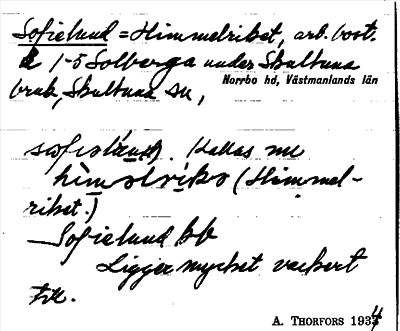 Sofielund = Himmelriket, arb. bost.
å 1-5 Solberga under Skultuna
Norrbo hd, Västmanlands län
bruk, Skultuna sn,
sofiəlúnd). Kallas nu
himəlrikə (Himmel-
riket.)
Sofielund bb
Ligger mycket vackert
till.
A. THORFORS 1934